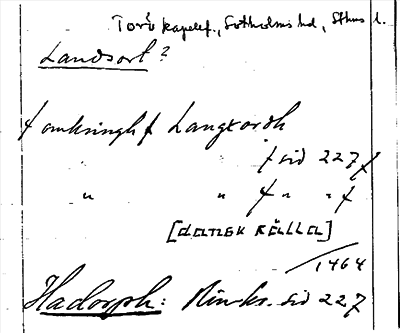 Torö kapellf., Sotholms hd, Sthms l.
Landsort?
/ omkringh / Langxordh
/ sid 227 /
" " / " " /
[DANSK KÄLLA]
/ 1464
Hadorph: Rimkr. sid 227